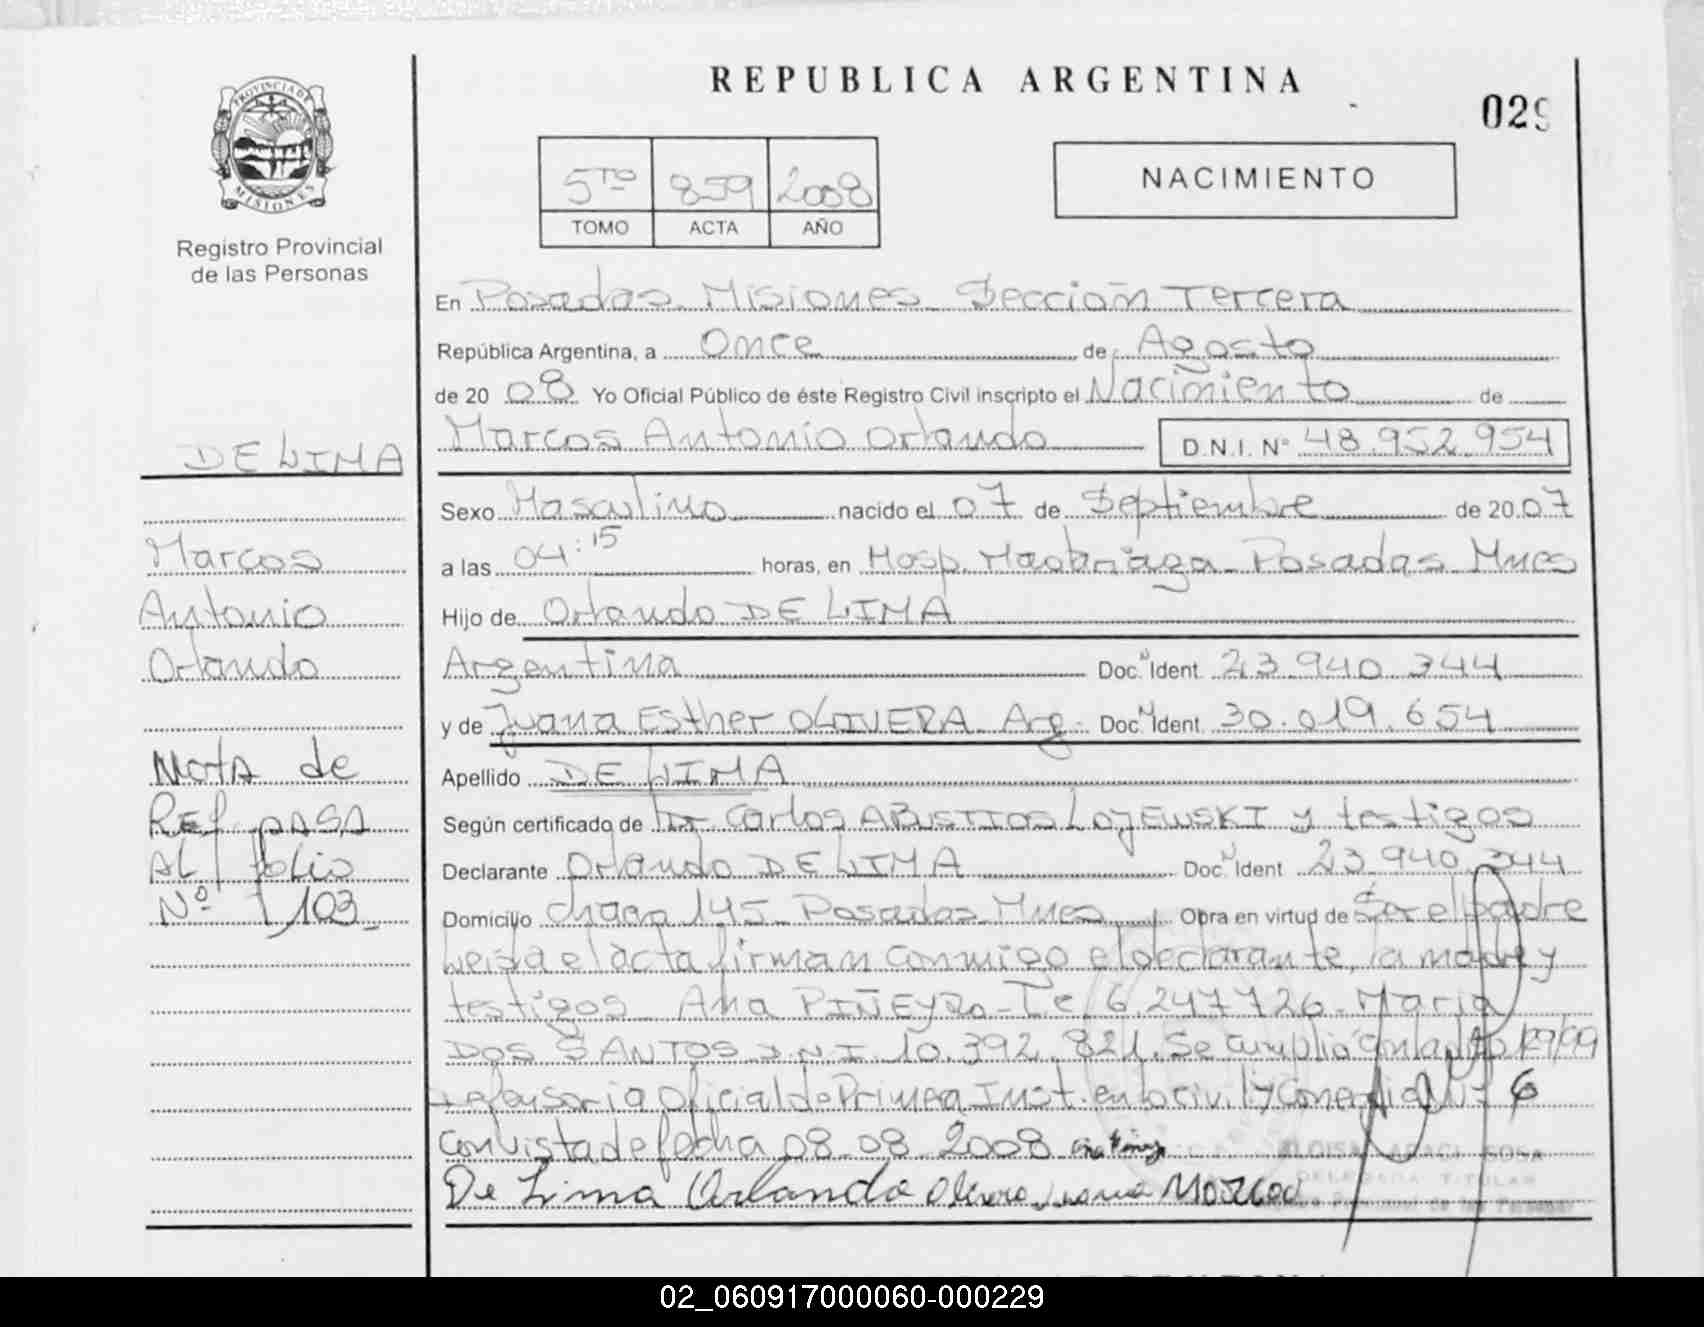 REPUBLICA ARGENTINA
029
PROVINCIA DE MISIONES
Registro Provincial
de las Personas
5TO 859 2008
TOMO ACTA AÑO
NACIMIENTO
En Posadas Misiones Sección Tercera
República Argentina, a Once de Agosto
de 2008 Yo Oficial Público de éste Registro Civil inscripto el Nacimiento de
Marcos Antonio Orlando D.N.I. Nº 48.952.954
Sexo Masculino nacido el 07 de Septiembre de 2007
a las 04:15 horas, en Hosp. Madariaga Posadas Mnes
Hijo de Orlando DE LIMA
Argentina Doc. Ident. 23.940.344
y de Juana Esther OLIVERA Arg. Doc. Ident. 30.019.654
Apellido DE LIMA
Según certificado de Dr Carlos LOJEWSKI y testigos
Declarante Orlando DE LIMA Doc. Ident 23.940.344
Domicilio chacra 145 Posadas Mnes Obra en virtud de Ser el padre
Leida el acta firman conmigo el declarante, la madre y
testigos Ana PIÑEYRO I.c 6.247.726 Maria
DOS SANTOS D.N.I. 10.392.821. Se cumplió con la 129/99
Defensoria Oficial de Primera Inst. en lo civil y Comercial Nº 6
con vista de fecha 08.08.2008
De Lima Orlando Olivera Juana
ELOISA ARACI SOSA
DELEGADA TITULAR
DE LIMA
Marcos
Antonio
Orlando
Nota de
Ref pasa
AL folio
Nº 103
02_060917000060-000229